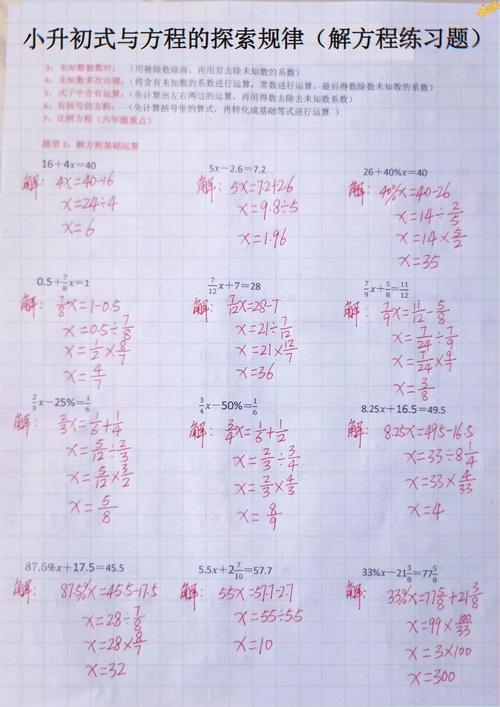 小升初式与方程的探索规律（解方程练习题）
3、未知数被数时：（用被除数除商，再用差去除未知数的系数）
4、未知数多次出现：（将含有未知数的系数进行运算，常数进行运算，最后得数除除数未知数的系数）
5、式子中含有运算：（先计算出左右两边的运算，再用得数去除去未知数系数）
6、有括号的方程，（先计算括号里的算式，再转化成基础等式进行运算）
7、比例方程（六年级重点）
题型1：解方程基础运算
16+4x=40
解：4x=40-16
x=24÷4
x=6
5x-2.6=7.2
解：5x=7.2+2.6
x=9.8÷5
x=1.96
26+40%x=40
解：40%x=40-26
x=14÷2/5
x=14×5/2
x=35
0.5+7/8x=1
解：7/8x=1-0.5
x=0.5÷7/8
x=1/2×8/7
x=4/7
7/12x+7=28
解：7/12x=28-7
x=21÷7/12
x=21×12/7
x=36
7/9x+5/8=11/12
解：7/9x=11/12-5/8
x=7/24÷7/9
x=7/24×9/7
x=3/8
2/3x-25%=1/6
解：2/3x=1/6+1/4
x=5/12÷2/3
x=5/12×3/2
x=5/8
3/4x-50%=1/6
解：3/4x=1/6+1/2
x=2/3÷3/4
x=2/3×4/3
x=8/9
8.25x+16.5=49.5
解：8.25x=49.5-16.5
x=33÷8 1/4
x=33×4/33
x=4
87.5%x+17.5=45.5
解：87.5%x=45.5-17.5
x=28÷7/8
x=28×8/7
x=32
5.5x+2 7/10=57.7
解：5.5x=57.7-2.7
x=55÷5.5
x=10
33%x-21 3/8=77 5/8
解：33%x=77 5/8+21 3/8
x=99×100/33
x=3×100
x=300